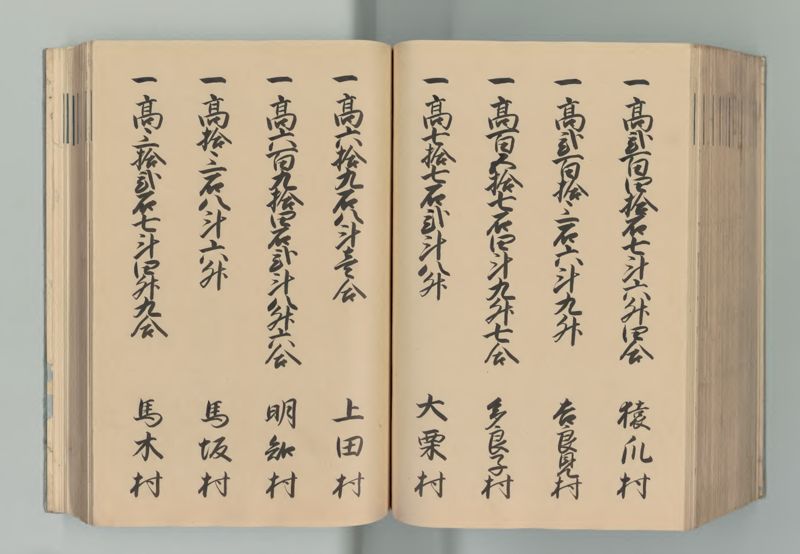 一高弐百四拾石七斗六升四合 猿爪村
一高弐百拾三石六斗九升 吉良見村
一高百五拾七石四斗九升七合 多良子村
一高七拾七石弐斗八升 大栗村
一高六拾九石八斗壱合 上田村
一高六百九拾四石弐斗八升六合 明知村
一高拾三石八斗六升 馬坂村
一高三拾弐石七斗四升九合 馬木村